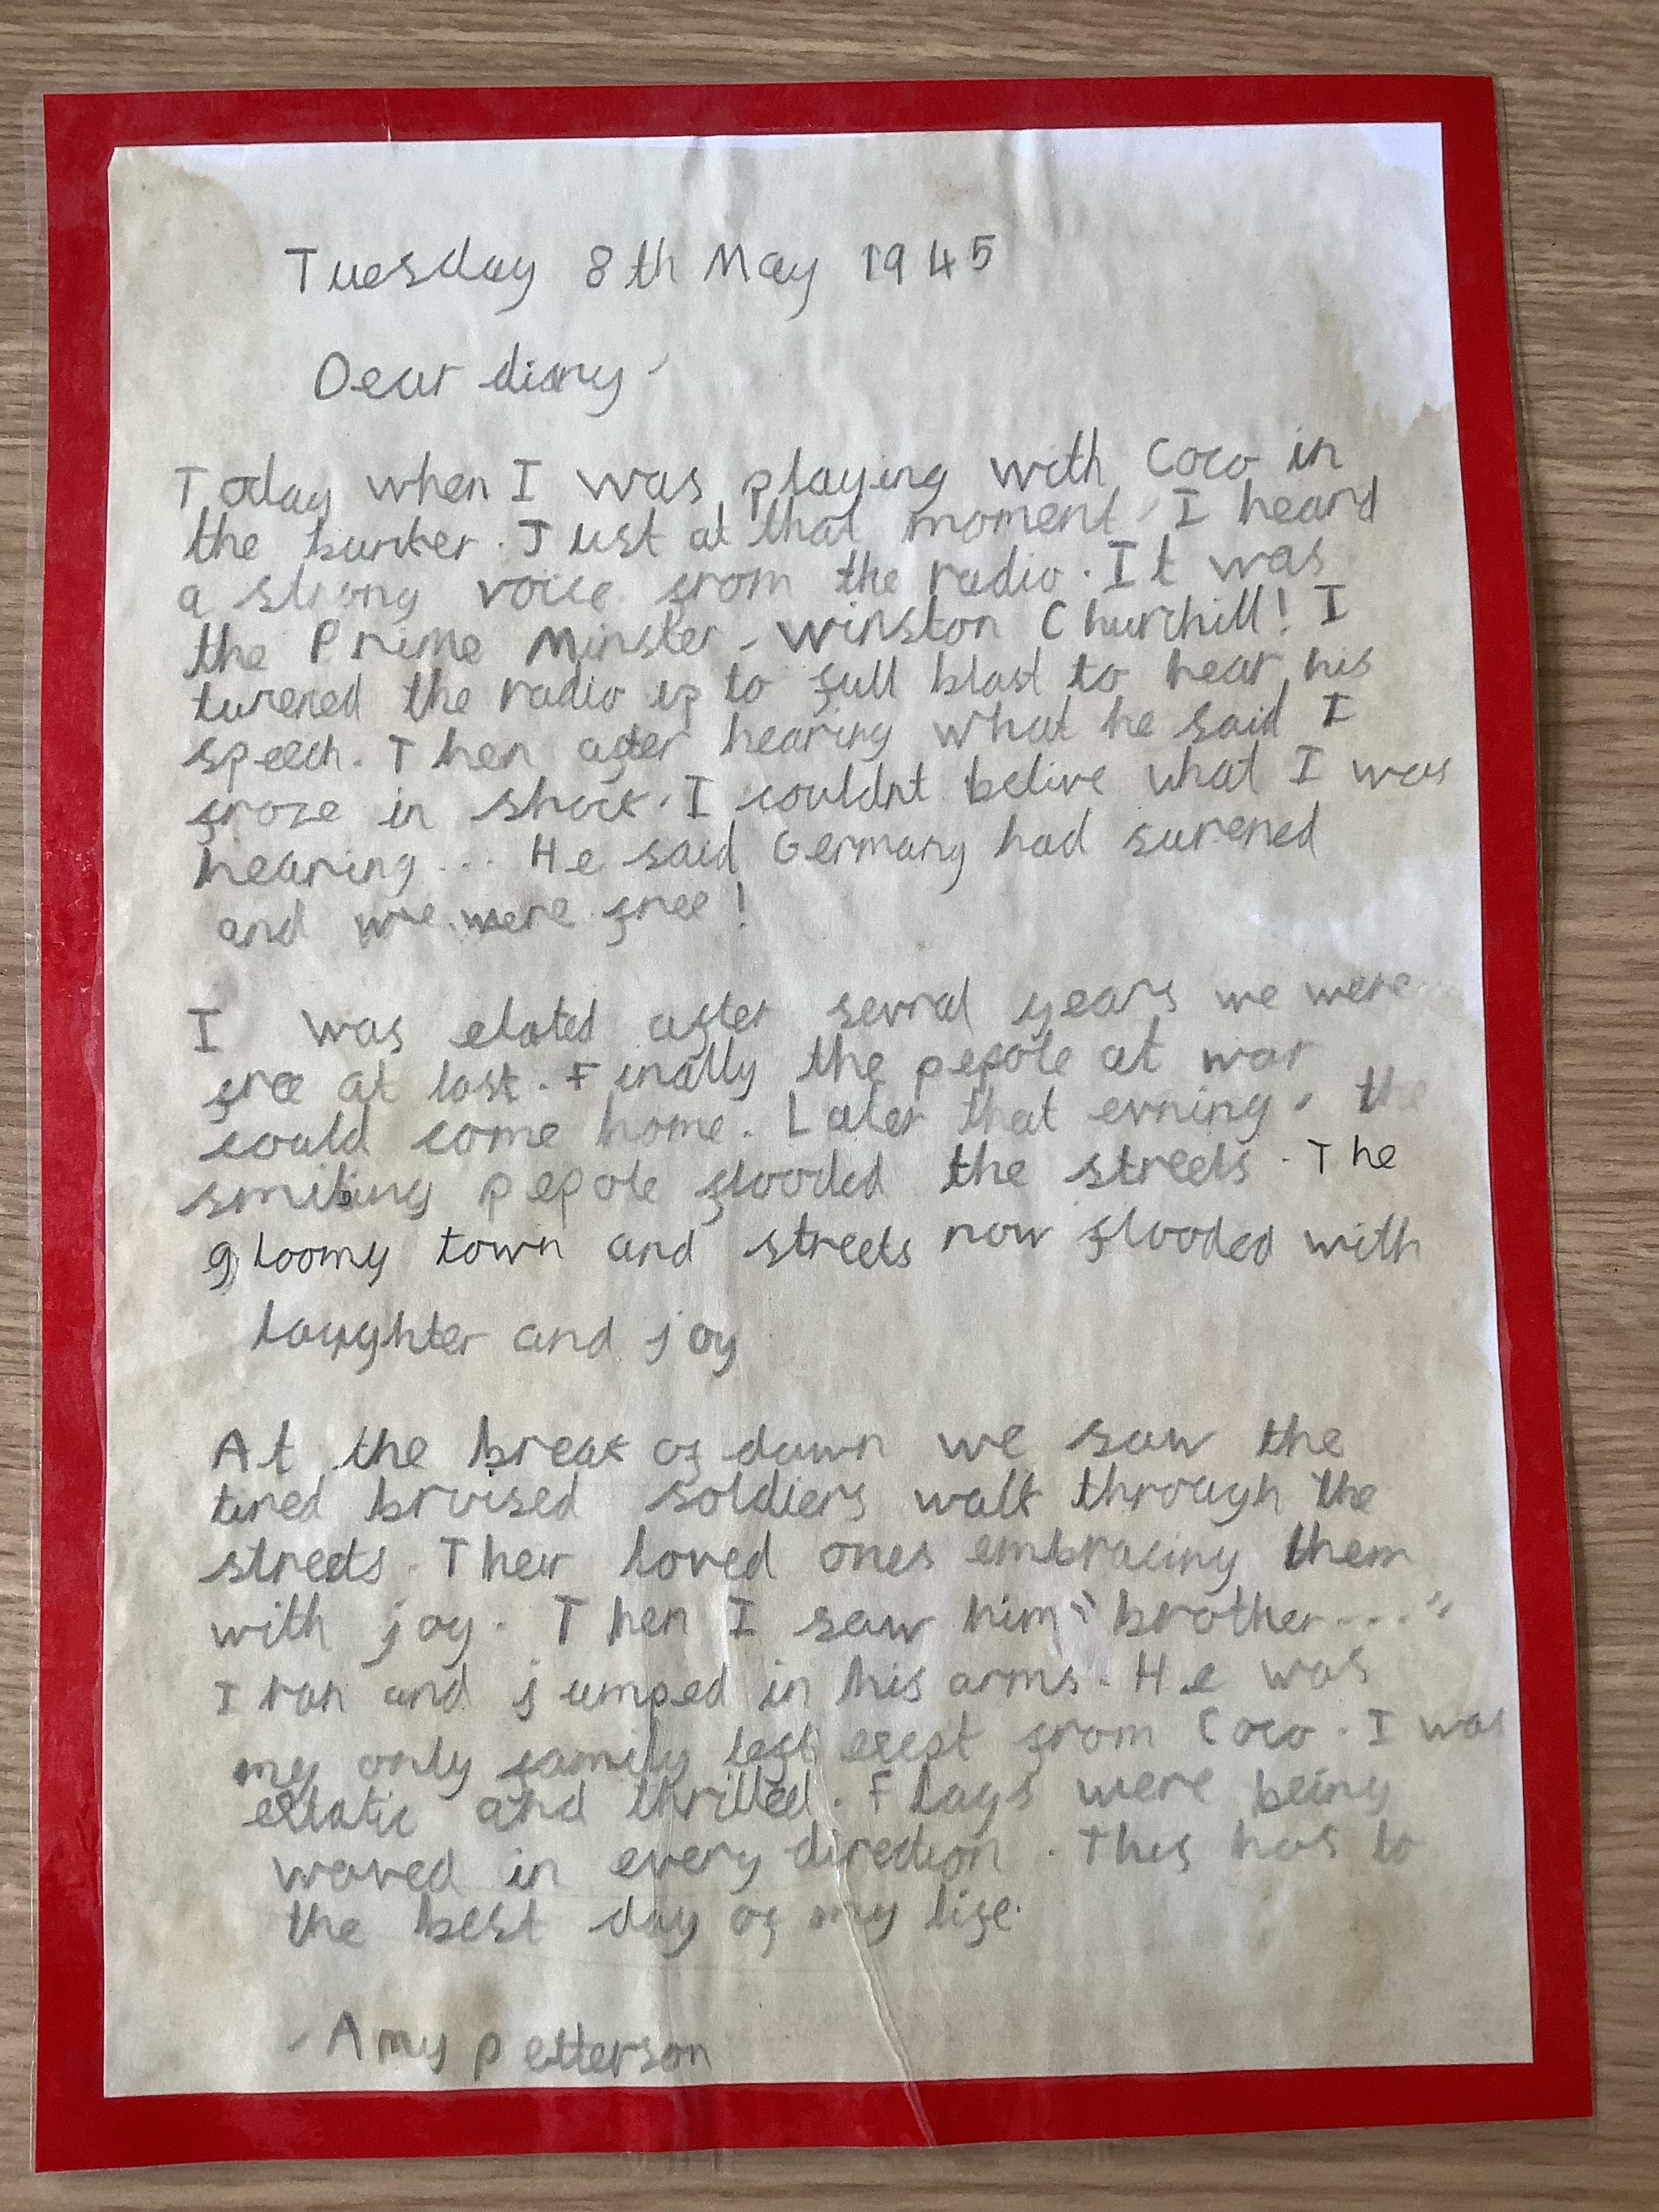 Tuesday 8th May 1945
Dear diary,
Today when I was playing with Coco in
the bunker. Just at that moment, I heard
a strong voice from the radio. It was
the Prime Minster, Winston Churchill! I
turened the radio up to full blast to hear his
speech. Then after hearing what he said I
froze in shock. I couldnt belive what I was
hearing... He said Germany had surened
and we were free!
I was elated after sevral years we were
free at last. Finally the pepole at war
could come home. Later that evrning, the
smiling pepole flooded the streets. The
gloomy town and streets now flooded with
laughter and joy
At the break of dawn we saw the
tired bruised soldiers walk through the
streets. Their loved ones embracing them
with joy. Then I saw him "brother..."
I ran and jumped in his arms. He was
my only family left exept from Coco. I was
exstatic and thrilled. Flags were being
waved in every direction. This has to
the best day of my life.
- Amy petterson